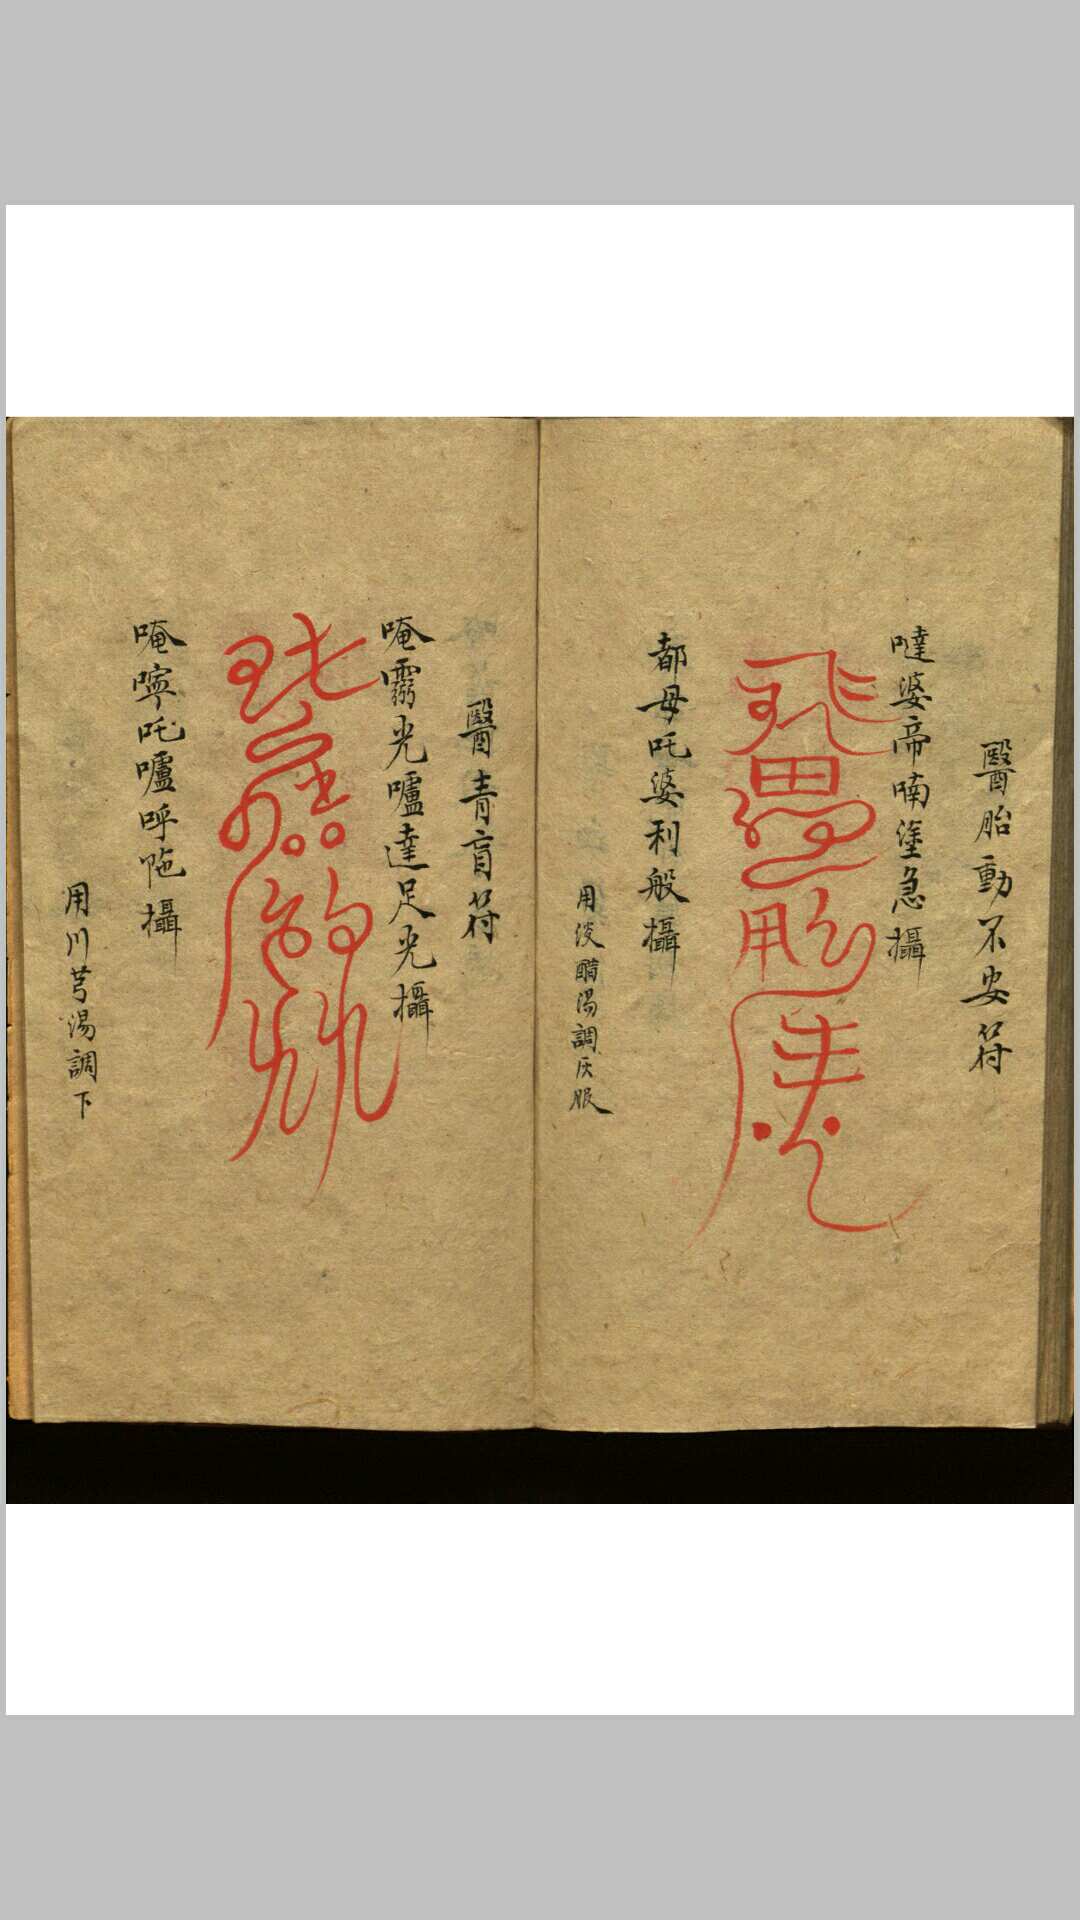 醫胎動不安符
噠婆帝喃塗急攝
都母吒婆利般攝
用淡醋湯調灰服
醫青盲符
唵霛光嚧達足光攝
唵嚀吒嚧呼陁攝
用川芎湯調下